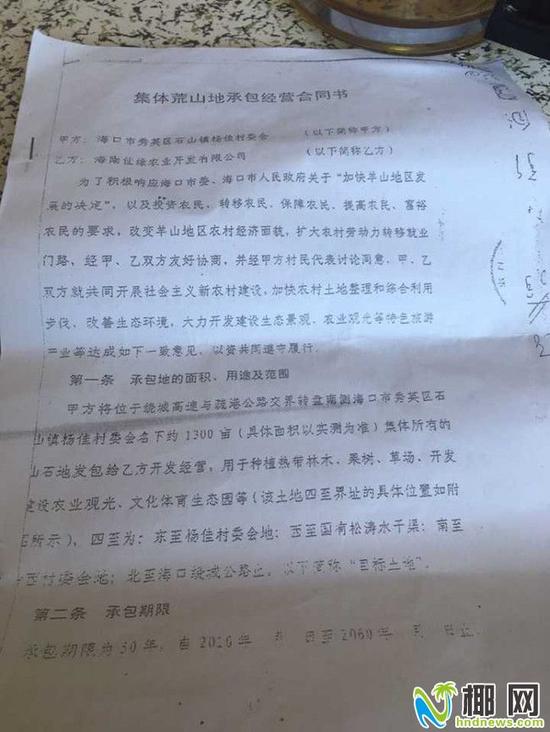 集体荒山地承包经营合同书
甲方：海口市秀英区石山镇杨佳村委会 （以下简称甲方）
乙方：海南仕缘农业开发有限公司 （以下简称乙方）
为了积极响应海口市委、海口市人民政府关于“加快羊山地区发
展的决定”，以及投资农民、转移农民、保障农民、提高农民、富裕
农民的要求，改变羊山地区农村经济面貌，扩大农村劳动力转移就业
门路，经甲、乙双方友好协商，并经甲方村民代表讨论同意，甲、乙
双方就共同开展社会主义新农村建设，加快农村土地整理和综合利用
步伐、改善生态环境，大力开发建设生态景观、农业观光等特色旅游
产业等达成如下一致意见，以资共同遵守履行。
第一条 承包地的面积、用途及范围
甲方将位于绕城高速与疏港公路交界转盘南侧海口市秀英区石
山镇杨佳村委会名下约1300亩（具体面积以实测为准）集体所有的
山石地发包给乙方开发经营，用于种植热带林木、果树、草场、开发
建设农业观光、文化体育生态园等（该土地四至界址的具体位置如附
所示），四至为：东至杨佳村委会地；西至国有松涛水干渠；南至
西村委会地；北至海口绕城公路止，以下简称“目标土地”。
第二条 承包期限
承包期限为30年，自20 年 月 日至20 年 月 日止
椰网
hndnews.com